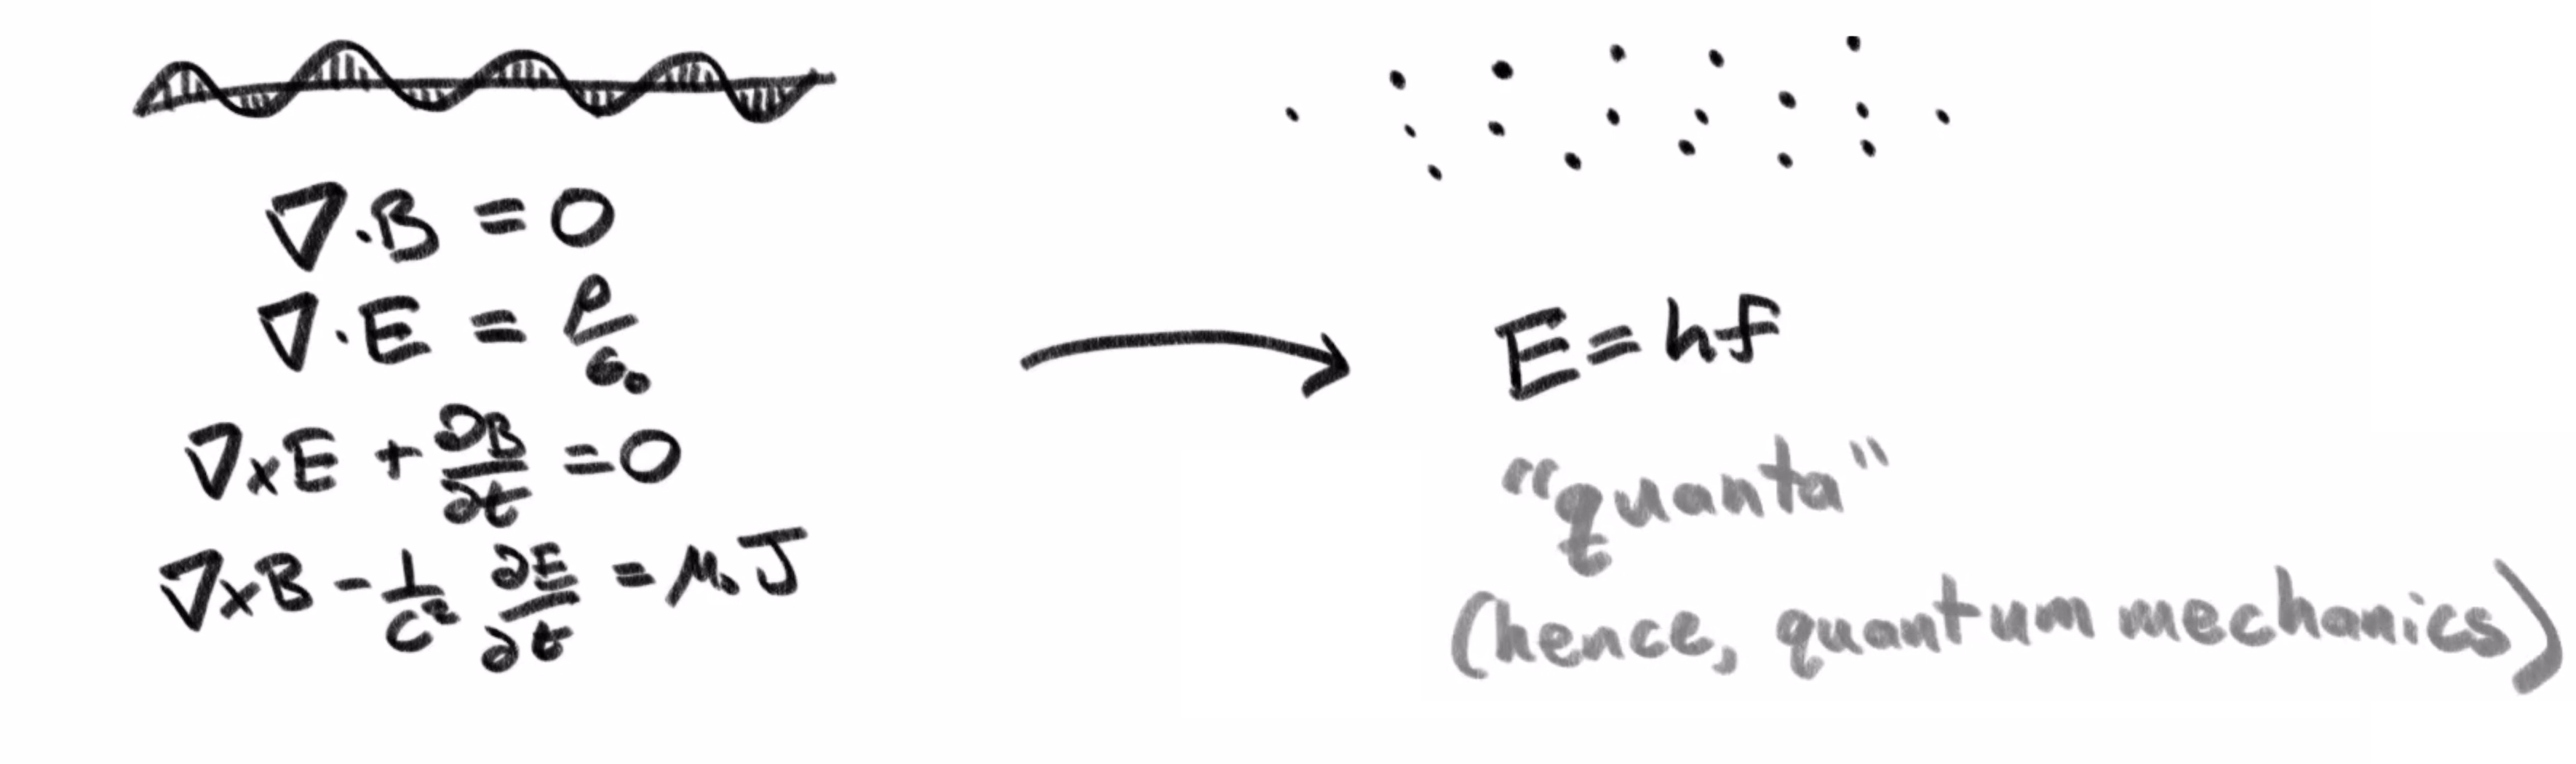 ∇·B = 0
∇·E = ρ/ε₀
∇×E + ∂B/∂t = 0
∇×B - 1/c² ∂E/∂t = μ₀J
E = hf
"quanta"
(hence, quantum mechanics)